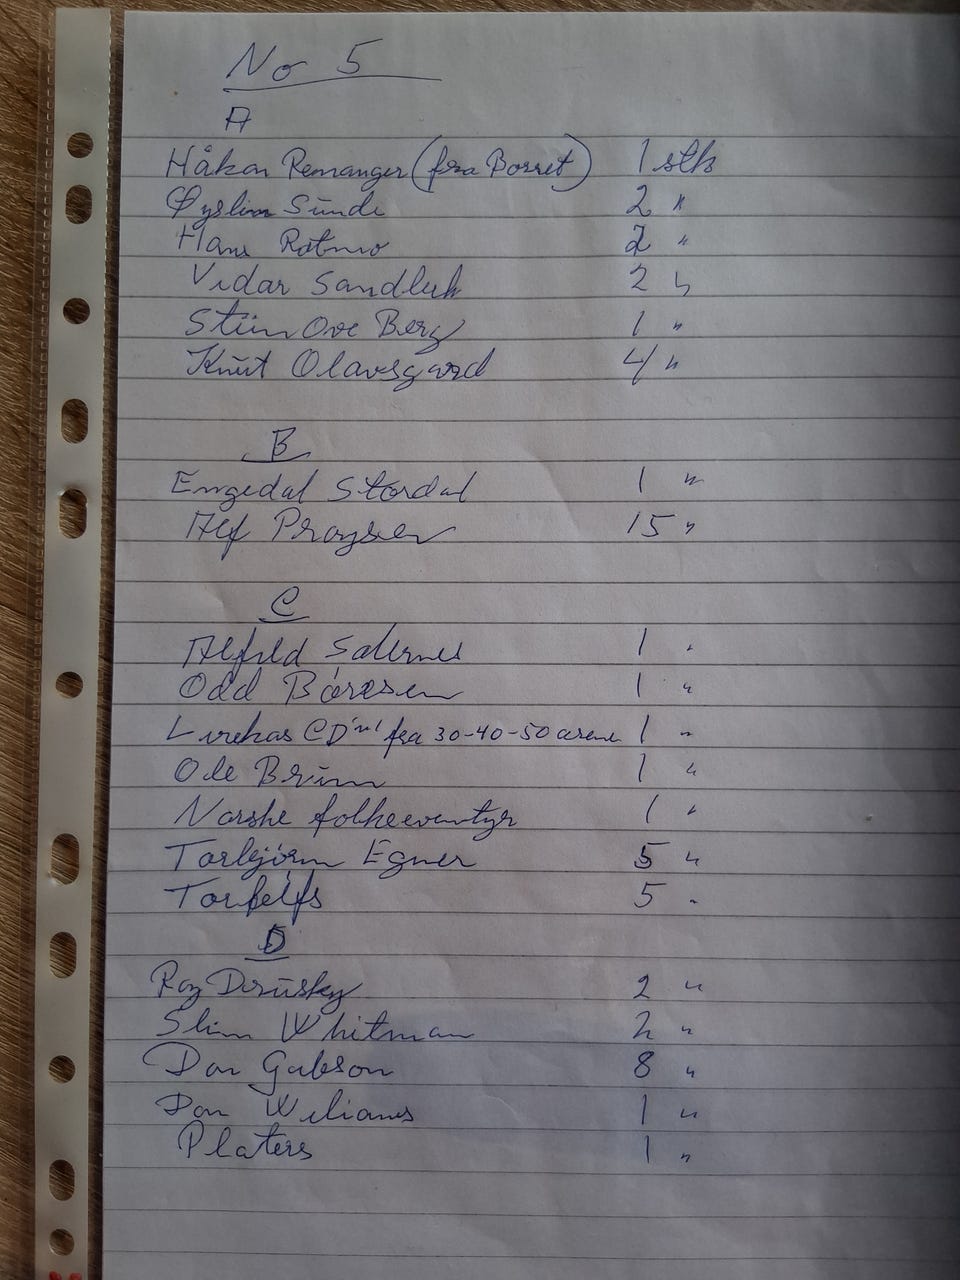 No 5
A
Håkon Remanger (fra Borret) 1 stk
Øystein Sunde 2 "
Hans Rotmo 2 "
Vidar Sandbek 2 "
Stein Ove Berg 1 "
Knut Olavsgard 4 "
B
Engedal Stordal 1 "
Alf Prøysen 15 "
C
Alfred Salernes 1 "
Odd Børresen 1 "
Lirekas CD fra 30-40-50 årene 1 "
Ole Brum 1 "
Norske folkeeventyr 1 "
Torbjørn Egner 5 "
5 "
D
Roy Drusky 2 "
Slim Whitman 2 "
Don Gibson 8 "
Don Wiliams 1 "
Platers 1 "